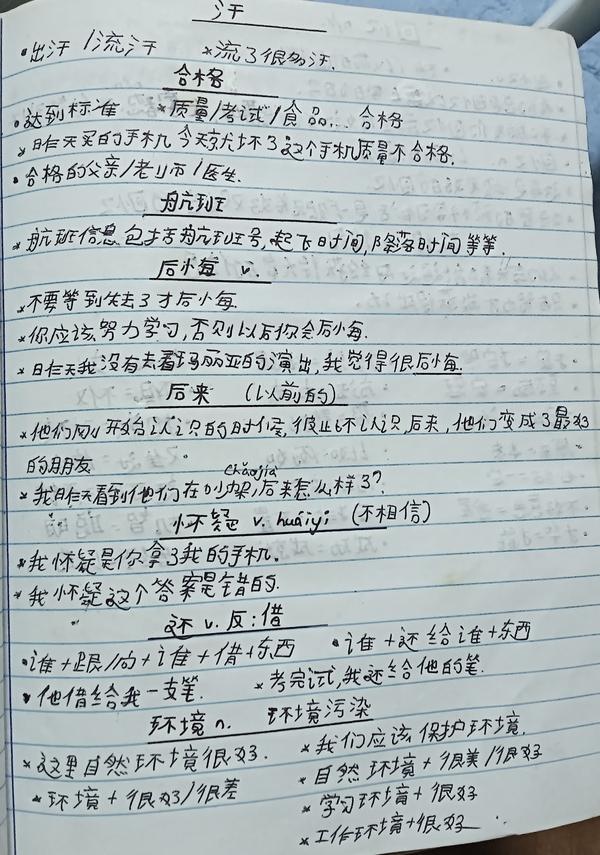 汗
•出汗 / 流汗 *流了很多汗.
合格
•达到标准 *质量/考试/食品... 合格
*昨天买的手机今天就坏了这个手机质量不合格.
•合格的父亲/老师/医生.
航班
*航班信息包括航班号, 起飞时间, 降落时间等等.
后悔 v.
*不要等到失去了才后悔.
*你应该努力学习, 否则以后你会后悔.
*昨天我没有去看玛丽亚的演出, 我觉得很后悔.
后来 (以前的)
*他们刚开始认识的时候, 彼此不认识, 后来, 他们变成了最好
的朋友.
chǎojià
*我昨天看到他们在吵架, 后来怎么样了?
怀疑 v. huáiyí (不相信)
*我怀疑是你拿了我的手机.
*我怀疑这个答案是错的.
还 v. 反: 借
•谁+跟/向+谁+借+东西 •谁+还给谁+东西
•他借给我一支笔. *考完试, 我还给他的笔.
环境 n. 环境污染
*这里自然环境很好. *我们应该保护环境.
*环境+很好/很差 *自然环境+很美/很好
*学习环境+很好
*工作环境+很好